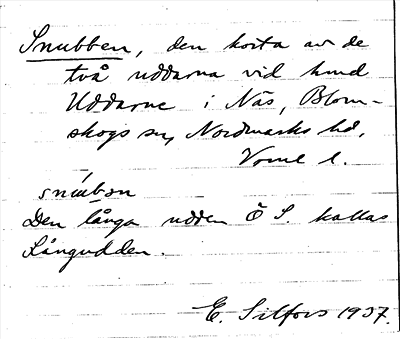 Snubben, den korta av de
två uddarna vid hmd
Uddarne i Näs, Blom-
skogs sn, Nordmarks hd,
Värml l.
snúbən
Den långa udden Ö S. kallas
Långudden.
E. Silfors 1937.